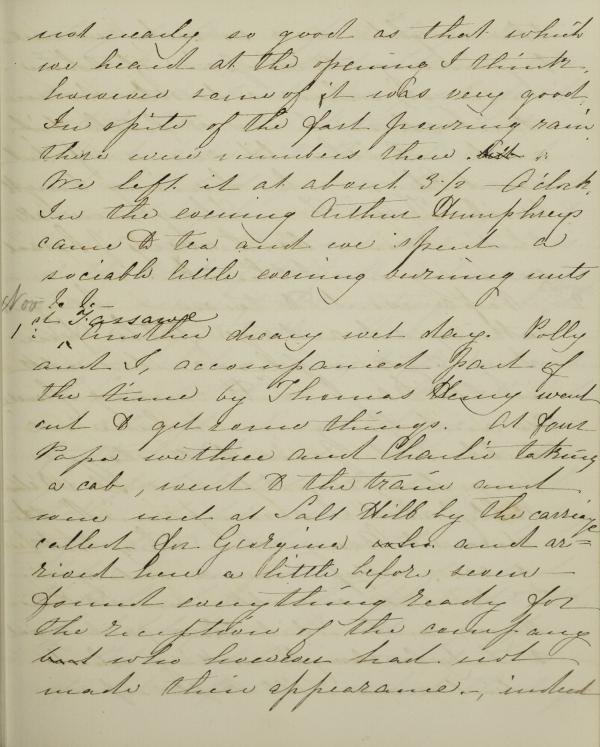 not nearly so good as that which
we heard at the opening I think,
however some of it was very good.
In spite of the fast pouring rain
there were numbers there.
We left it at about 3 1/2 O'clock.
In the evening Arthur Humphreys
came to tea and we spent a
sociable little evening burning nuts
Nov
1st Tassaroe
Another dreary wet day. Polly
and I, accompanied part of
the time by Thomas Henry went
out to get some things. At four
Papa we three and Charlie taking
a cab, went to the train and
were met at Salt Hill by the carriage
called for Georgina and ar=
rived here a little before seven
found everything ready for
the reception of the company
but who however had not
made their appearance -, indeed